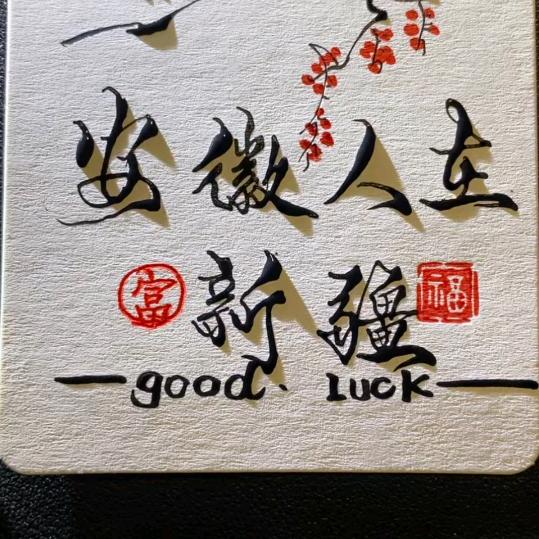 安徽人在
富 新疆 福
good. luck